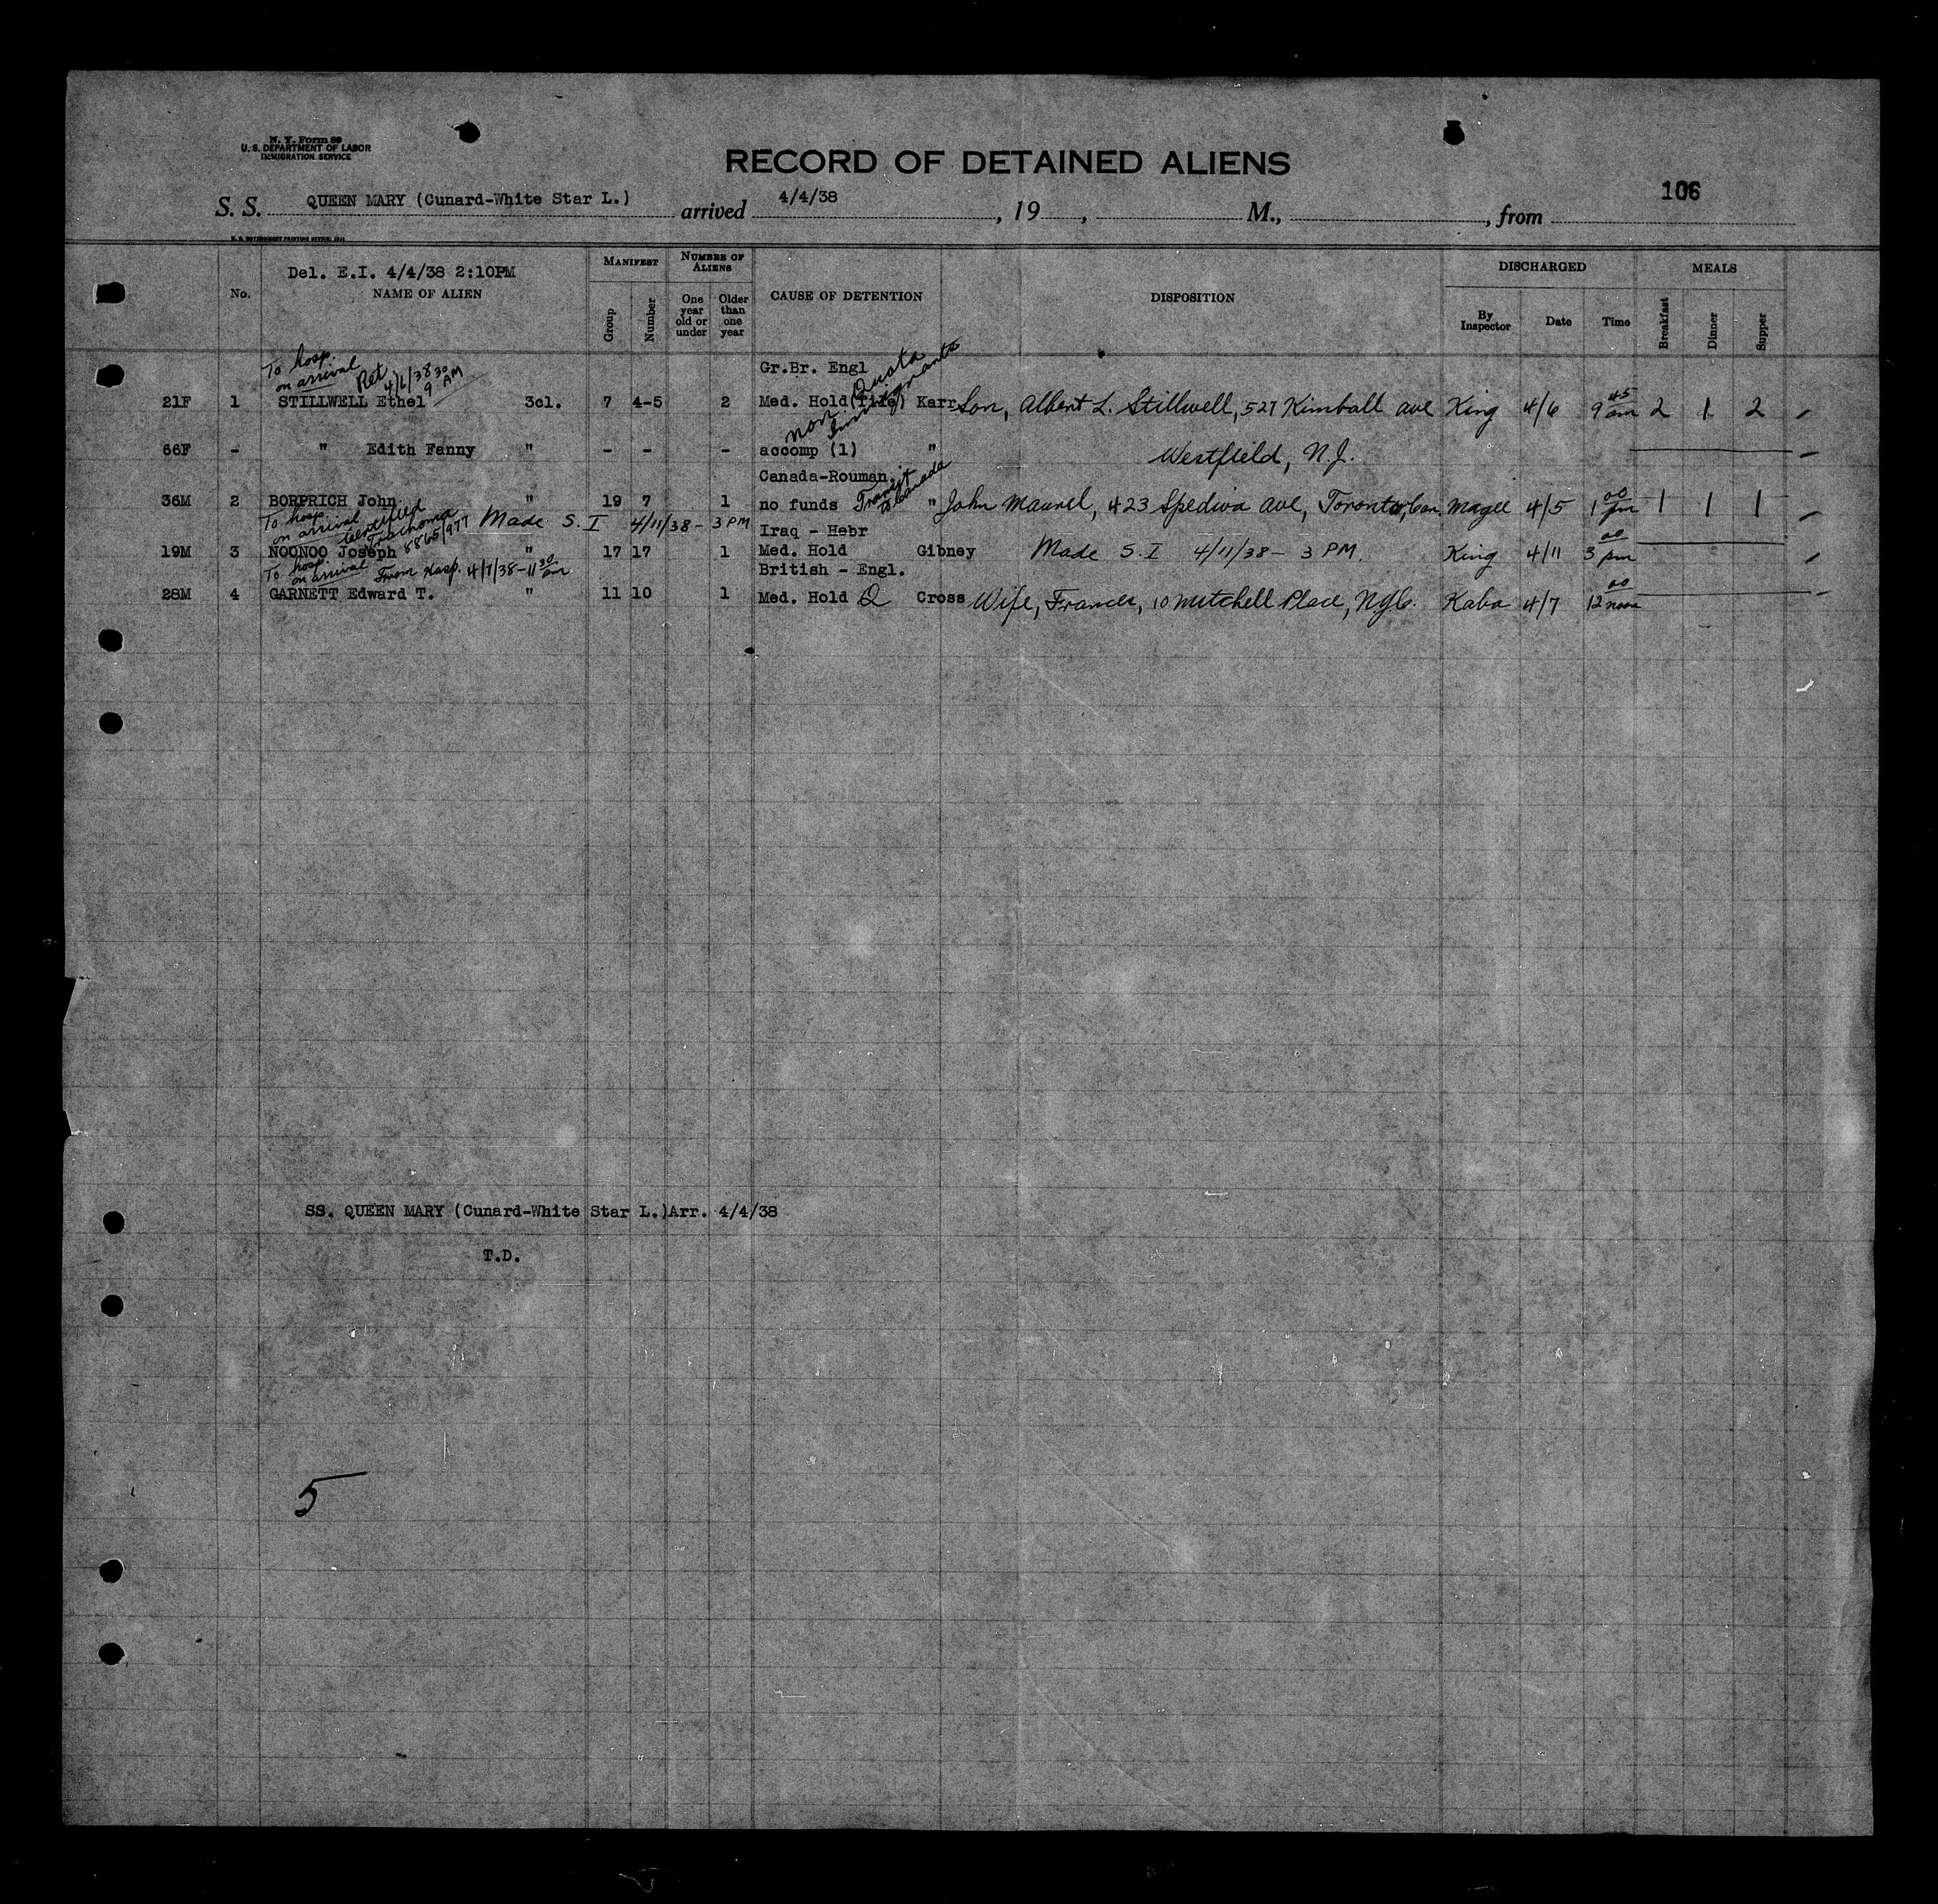 N. Y. Form 89
U. S. DEPARTMENT OF LABOR
IMMIGRATION SERVICE
RECORD OF DETAINED ALIENS
106
S. S. QUEEN MARY (Cunard-White Star L.) arrived 4/4/38, 19, M., from
Del. E.I. 4/4/38 2:10PM
No. NAME OF ALIEN MANIFEST Group Number NUMBER OF ALIENS One year old or under Older than one year CAUSE OF DETENTION DISPOSITION DISCHARGED By Inspector Date Time MEALS Breakfast Dinner Supper
To hosp. on arrival Ret 4/6/38 9 30 AM Gr.Br. Engl
non Quota Immigrants
21F 1 STILLWELL Ethel 3cl. 7 4-5 2 Med. Hold(fife) Karr Son, Albert L. Stillwell, 527 Kimball ave King 4/6 9 45 am 2 1 2
66F - " Edith Fanny " - - - accomp (1) " Westfield, N.J.
Canada-Rouman.
36M 2 BORPRICH John " 19 7 1 no funds Transit to Canada " John Maurel, 423 Spediva ave, Toronto, Can. Magee 4/5 1 00 pm 1 1 1
To hosp. on arrival Certified Trachoma 8865/977 Made S. I 4/11/38 - 3 PM Iraq - Hebr
19M 3 NOONOO Joseph " 17 17 1 Med. Hold Gibney Made S. I 4/11/38 - 3 PM. King 4/11 3 00 pm
To hosp. on arrival From Hosp. 4/7/38 - 11 30 am British - Engl.
28M 4 GARNETT Edward T. " 11 10 1 Med. Hold Q Cross Wife, Frances, 10 Mitchell Place, NYC. Kaba 4/7 12 00 noon
SS. QUEEN MARY (Cunard-White Star L.)Arr. 4/4/38
T.D.
5